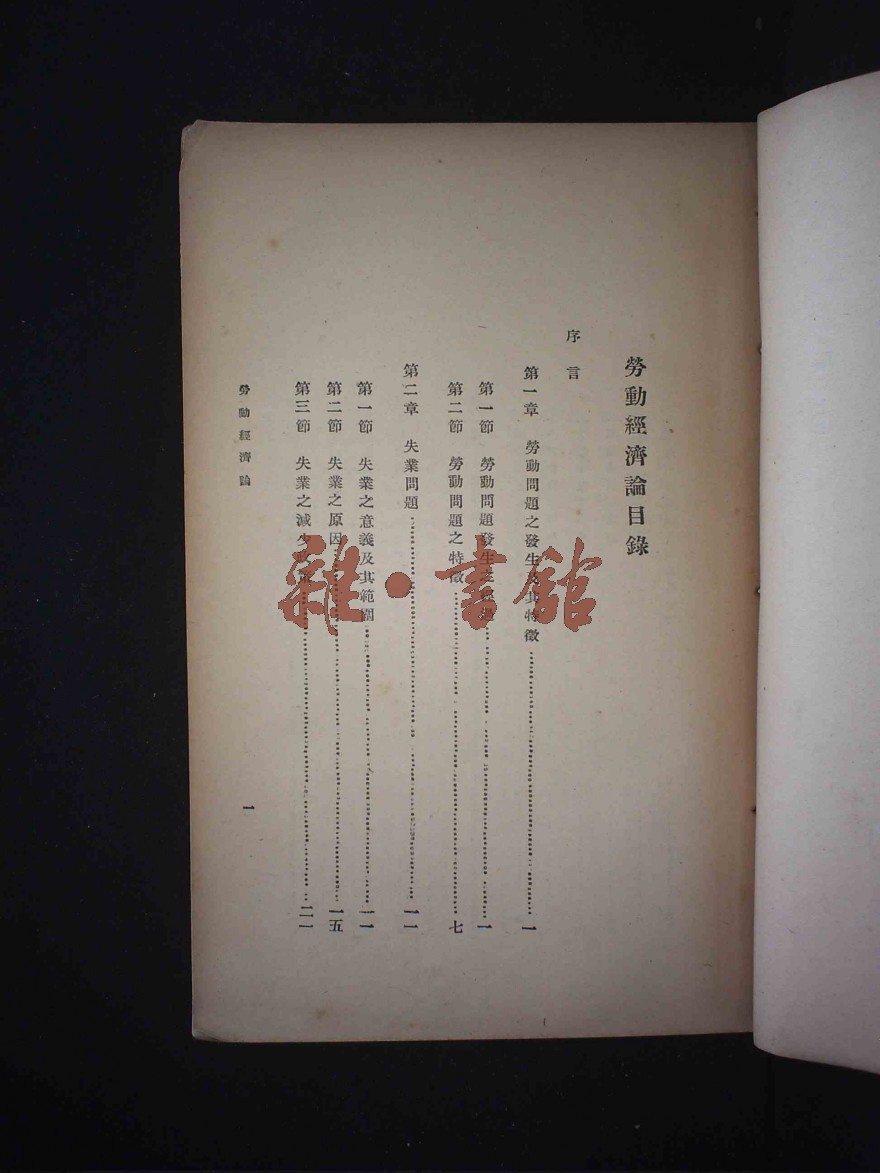 勞動經濟論目錄
序言
第一章 勞動問題之發生及其特徵 一
第一節 勞動問題發生之 一
第二節 勞動問題之特徵 七
第二章 失業問題 一一
第一節 失業之意義及其範圍 一一
第二節 失業之原因 一五
第三節 失業之減少 二一
勞動經濟論
一
雜·書館